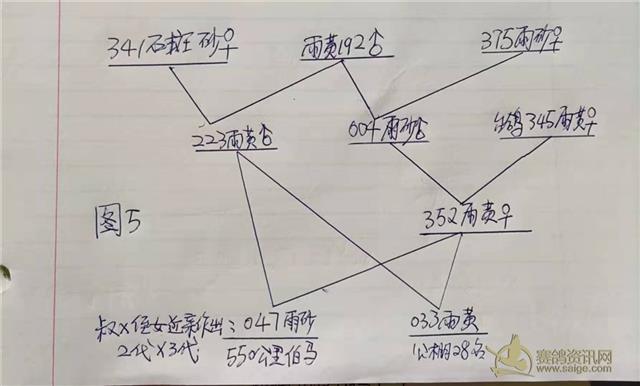 341石板王砂♀
雨黄192♂
375雨砂♀
223雨黄♂
004雨砂♂
外鸽345雨黄♀
352雨黄♀
图5
叔X侄女近亲作出:047雨砂
2代X3代
550公里伯马
033雨黄
公棚28名
赛鸽资讯网
www.saige.com